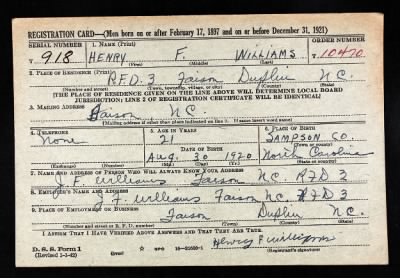 REGISTRATION CARD—(Men born on or after February 17, 1897 and on or before December 31, 1921)
SERIAL NUMBER 1. NAME (Print) ORDER NUMBER
T 918 HENRY F. WILLIAMS T 10470
(First) (Middle) (Last)
2. PLACE OF RESIDENCE (Print)
R.F.D. 3 Faison Duplin N.C.
(Number and street) (Town, township, village, or city) (County) (State)
[THE PLACE OF RESIDENCE GIVEN ON THE LINE ABOVE WILL DETERMINE LOCAL BOARD
JURISDICTION; LINE 2 OF REGISTRATION CERTIFICATE WILL BE IDENTICAL]
3. MAILING ADDRESS
Faison, N.C.
[Mailing address if other than place indicated on line 2. If same insert word same]
4. TELEPHONE 5. AGE IN YEARS 6. PLACE OF BIRTH
None 21 SAMPSON CO.
DATE OF BIRTH (Town or county)
Aug. 30 1920 North Carolina
(Exchange) (Number) (Mo.) (Day) (Yr.) (State or country)
7. NAME AND ADDRESS OF PERSON WHO WILL ALWAYS KNOW YOUR ADDRESS
J. F. Williams Faison N.C. RFD 3
8. EMPLOYER'S NAME AND ADDRESS
J. F. Williams Faison N.C. RFD 3
9. PLACE OF EMPLOYMENT OR BUSINESS
Faison Duplin N.C.
(Number and street or R. F. D. number) (Town) (County) (State)
I AFFIRM THAT I HAVE VERIFIED ABOVE ANSWERS AND THAT THEY ARE TRUE.
Henry F Williams
D. S. S. Form 1
(Revised 1-1-42) (over)